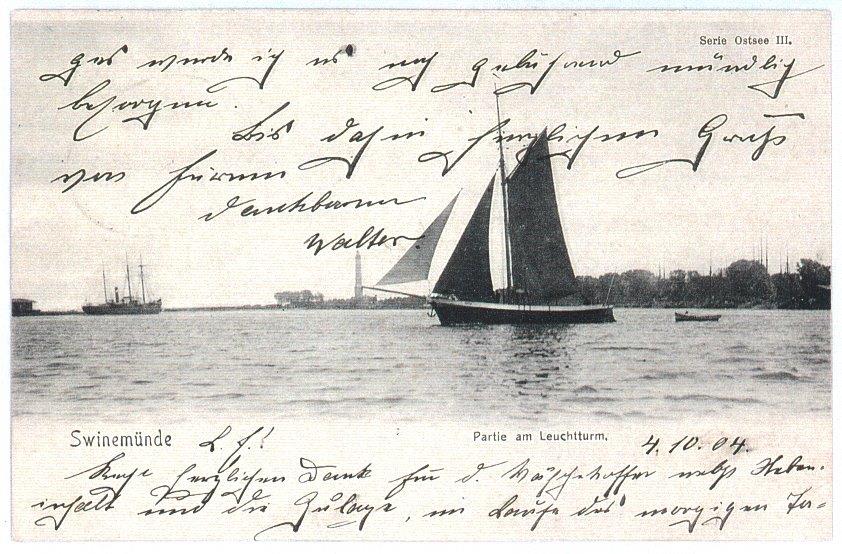 Serie Ostsee III.
ges werde ich es noch mündlich
besorgen.
Bis dahin herzlichen Gruß
von Eurem
dankbaren
Walter
Swinemünde L. E.!
Partie am Leuchtturm. 4.10.04.
herzlichen Dank für d. nebst
inhalt und die Zulage, im Laufe des morgigen Ta-